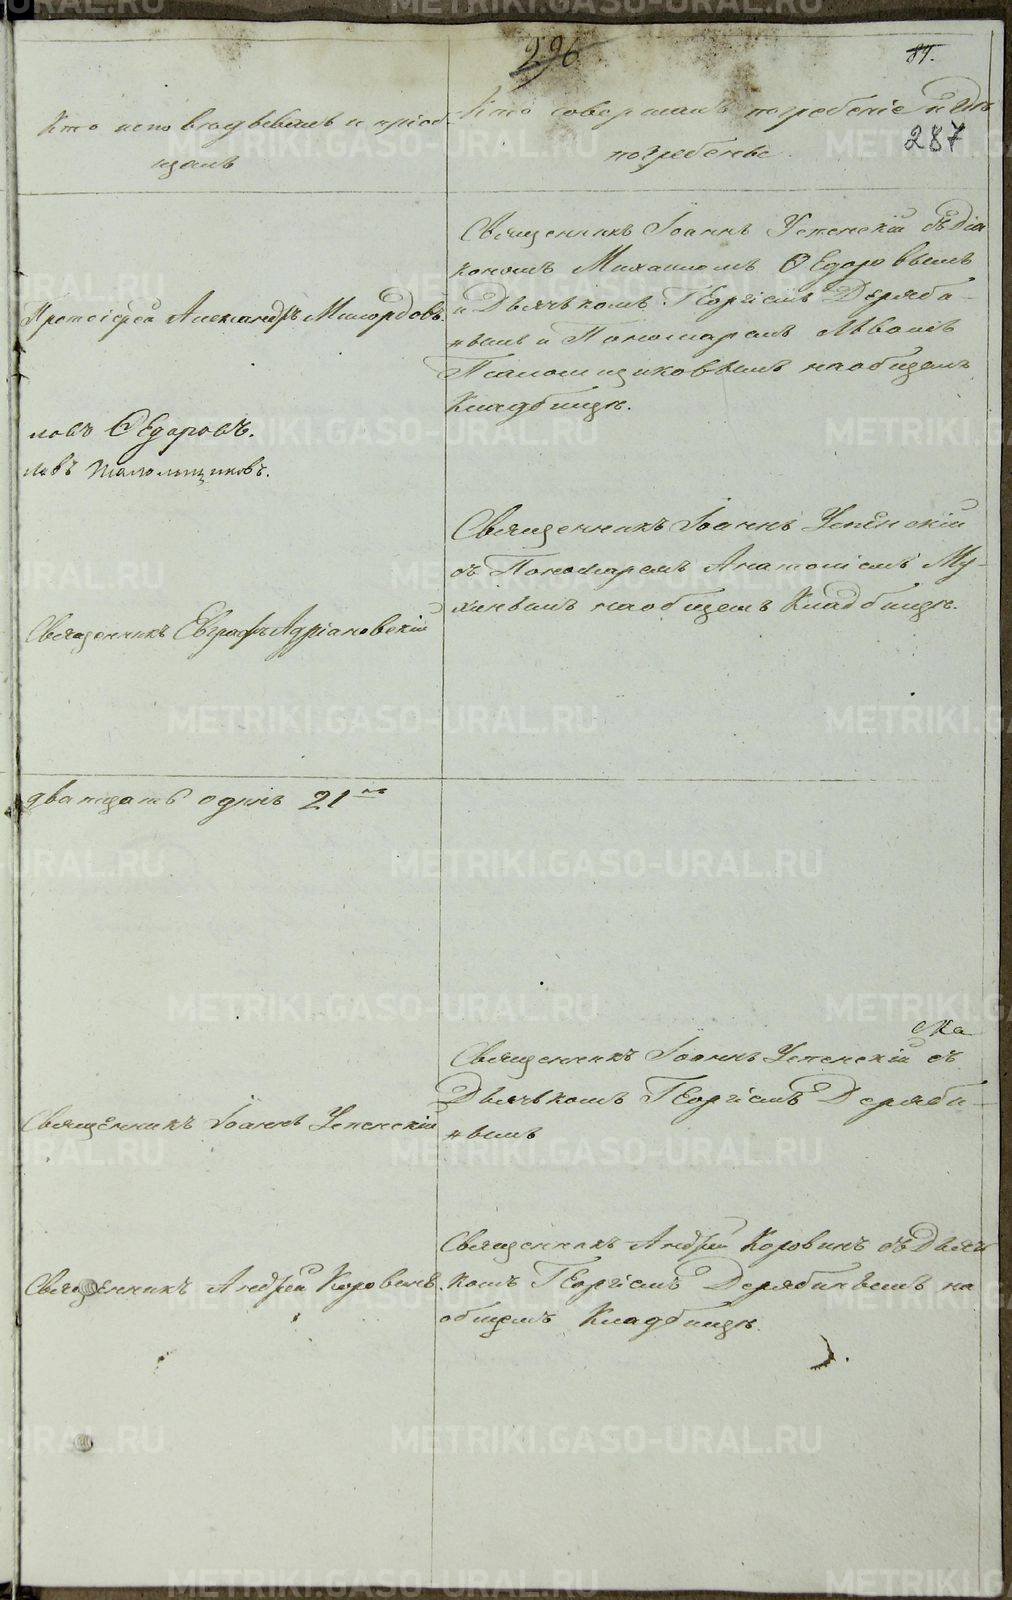 296
87.
287
Кто исповѣдывалъ и пріоб-
щалъ
Кто совершалъ погребеніе и гдѣ
погребены
Священникъ Іоаннъ Успенскій съ Діа
кономъ Михаиломъ Ѳедоровымъ
и Дьячькомъ Георгіемъ Деряби-
нымъ и Пономаремъ Львомъ
Псаломщиковымъ на общемъ
Кладбищѣ.
Протоіерей Александръ Милордовъ.
ловъ Ѳедоровъ.
левъ Псаломщиковъ.
Священникъ Іоаннъ Успенскій
съ Пономаремъ Анатоліемъ Му-
хинымъ на общемъ Кладбищѣ.
Священникъ Евграфъ Адріановскій
двадцать одинъ 21
Священникъ Іоаннъ Успенскій съ
Дьячькомъ Георгіемъ Деряби-
нымъ
Священникъ Іоаннъ Успенскій
Священникъ Андрей Коровинъ съ Дьячь
комъ Георгіемъ Дерябинымъ на
общемъ Кладбищѣ.
Священникъ Андрей Коровинъ.
METRIKI.GASO-URAL.RU